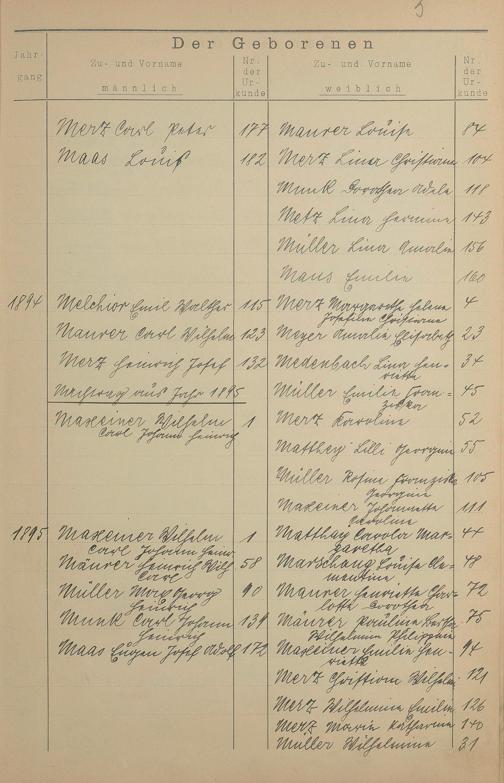 5
Der Geborenen
Jahr-
gang
Zu- und Vorname
männlich
Nr.
der
Ur-
kunde
Zu- und Vorname
weiblich
Nr.
der
Ur-
kunde
Merz Carl Peter 177 Maurer Louise 84
Maas Louis 182 Merz Lina Christiane 104
Munk Dorothea Adele 118
Metz Lina Hermine 143
Müller Lina Amalie 156
Maus Emilie 160
1894 Melchior Emil Walther 115 Merz Margarethe Helene 4
Josefine Christiane
Maurer Carl Wilhelm 123 Meyer Amalie Elisabeth 23
Merz Heinrich Josef 132 Medenbach Lina Hen- 34
riette
Nachtrag aus Jahr 1895 Müller Emilie Fran- 45
ziska
Maxeiner Wilhelm 1 Merz Karoline 52
Carl Johann Heinrich
Matthey Lilli Georgine 55
Müller Rosine Franziska 105
Georgine
Maxeiner Johannette 111
Caroline
1895 Maxeiner Wilhelm 1 Matthay Carola Mar- 44
Carl Johann Heinr.
garetha
Mäurer Heinrich Wilh. 58 Marschang Louise Cle- 48
Carl
mentine
Müller Max Georg 90 Maurer Henriette Char- 72
Heinrich
lotte Dorothea
Munk Carl Johann 139 Mäurer Pauline Bertha 75
Heinrich
Wilhelmine Philippine
Maas Eugen Josef Adolf 172 Maxeiner Emilie Hen- 94
riette
Merz Christiane Wilhelm 121
Merz Wilhelmine Emilie 126
Merz Marie Katharine 140
Müller Wilhelmine 31